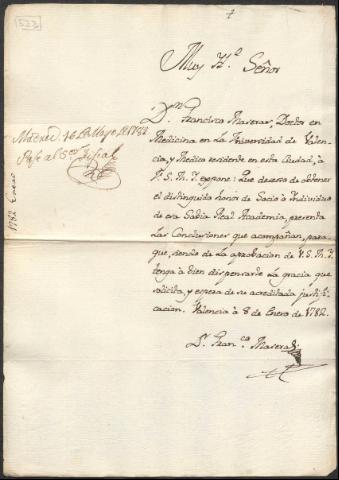 523
Muy Ye. Señor
Dn. Francisco Maseras, Doctor en
Medicina en la Universidad de Valen-
cia, y Medico residente en esta Ciudad, à
V. S. M. Y. expone: Que deseoso de obtener
el distinguido honor de Socio ò Individuo
de esa Sabia Real Academia, presenta
las Conclusiones que acompañan, para
que, siendo de la aprobacion de V. S. M. Y.
tenga à bien dispensarle la gracia que
solicita, y espera de su acreditada justifi-
cacion. Valencia à 8 de Enero de 1782.
Dr. Franco. Maseras
Madrid 16 de Mayo de 1782
Pase al Sor. Fiscal
1782 Enero